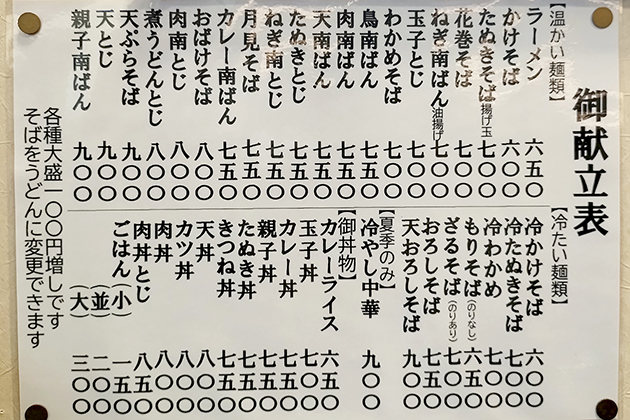 御献立表
【温かい麺類】
ラーメン 六五〇
かけそば 六〇〇
たぬきそば揚げ玉 七〇〇
花巻そば 七〇〇
ねぎ南ばん油揚げ 七〇〇
玉子とじ 七〇〇
わかめそば 七〇〇
鳥南ばん 七五〇
肉南ばん 七五〇
天南ばん 七五〇
たぬきとじ 七五〇
ねぎ南とじ 七五〇
月見そば 七五〇
カレー南ばん 七五〇
おばけそば 八〇〇
肉南とじ 八〇〇
煮うどんとじ 八〇〇
天ぷらそば 九〇〇
天とじ 九〇〇
親子南ばん 九〇〇
【冷たい麺類】
冷かけそば 六〇〇
冷たぬきそば 七〇〇
冷わかめ 七〇〇
もりそば(のりなし) 六五〇
ざるそば(のりあり) 七〇〇
おろしそば 七五〇
天おろしそば 九〇〇
【夏季のみ】
冷やし中華 九〇〇
【御丼物】
カレーライス 六五〇
玉子丼 七〇〇
カレー丼 七五〇
親子丼 七五〇
たぬき丼 七五〇
きつね丼 七五〇
天丼 八〇〇
カツ丼 八〇〇
肉丼 八〇〇
肉丼とじ 八五〇
ごはん(小) 一五〇
(並) 二〇〇
(大) 三〇〇
各種大盛一〇〇円増しです
そばをうどんに変更できます